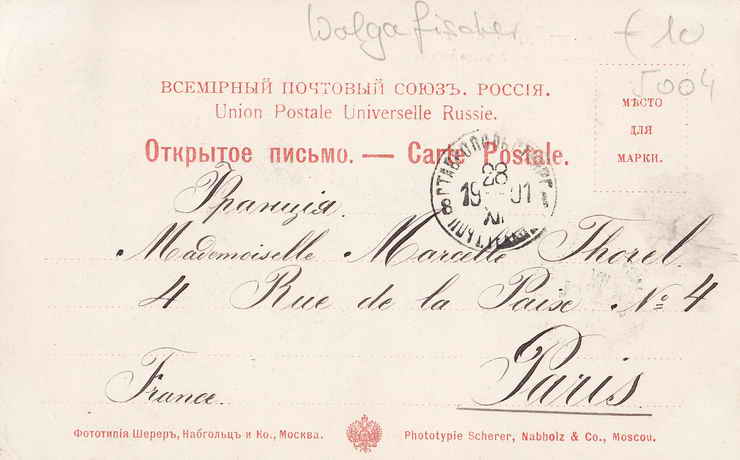 Wolgafischer € 10
5004
ВСЕМІРНЫЙ ПОЧТОВЫЙ СОЮЗЪ. РОССІЯ.
Union Postale Universelle Russie.
МѢСТО
ДЛЯ
МАРКИ.
Открытое письмо. — Carte Postale.
28
19 01
XII
Франція.
Mademoiselle Marcelle Thorel.
4 Rue de la Paix № 4
Paris
France.
Фототипія Шереръ, Набгольцъ и Ко., Москва.
Phototypie Scherer, Nabholz & Co., Moscou.